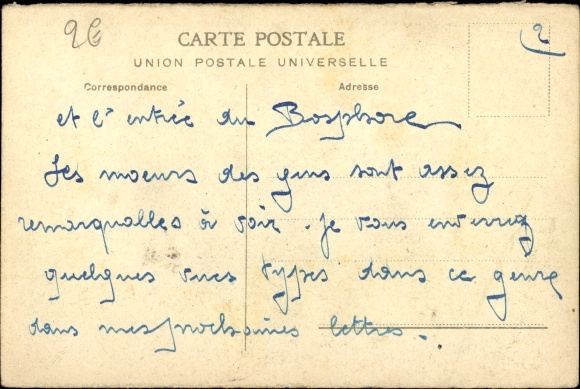 2
CARTE POSTALE
UNION POSTALE UNIVERSELLE
Correspondance
Adresse
et l'entrée du Bosphore
Les moeurs des gens sont assez
remarquables à voir. Je vous enverrez
quelques vues types dans ce genre
dans mes prochaines lettres.